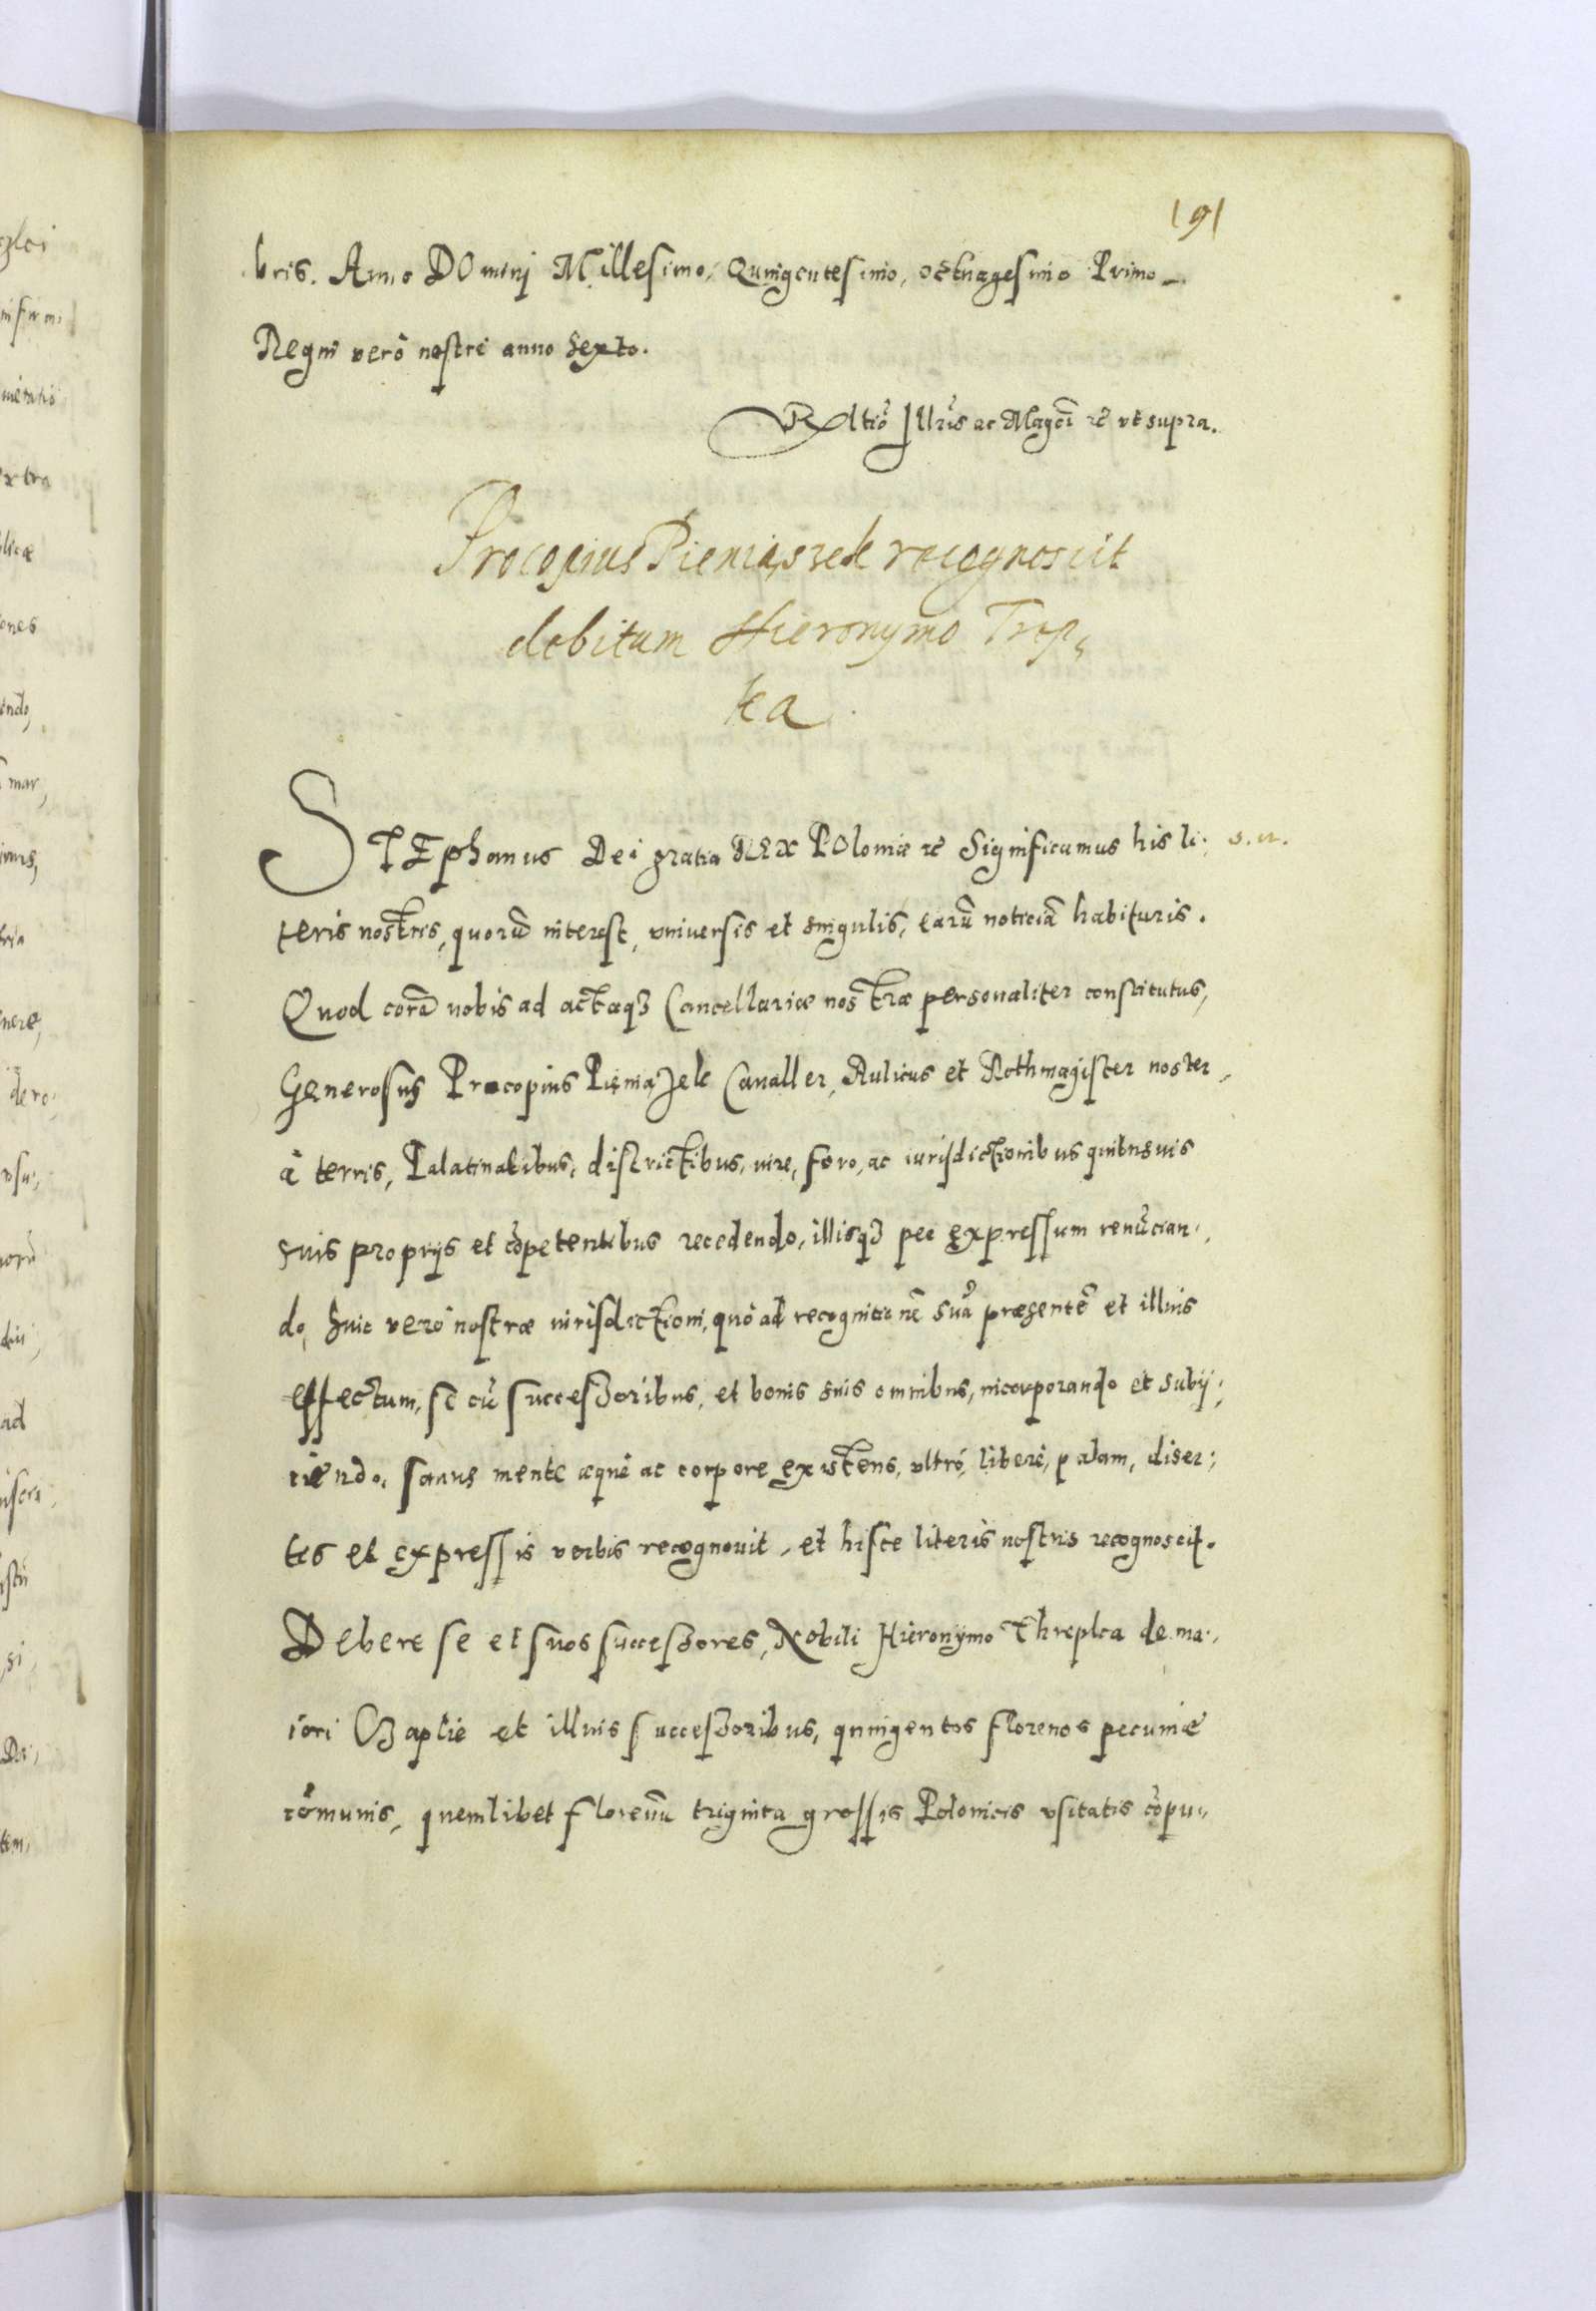 191
bris. Anno DOminj Millesimo, Quingentesimo, octuagesimo Primo
Regni verò nostri anno Sexto.
Rltiõ Jllris ac Magci rc vt supra.
Procopius Pieniązek recognoscit
debitum Hieronymo Trep,
ka
STEphanus Dei gratia REX POloniæ rc Significamus his li, s. n.
teris nostris, quorũ interest, vniuersis et singulis, earũ noticiã habituris.
Quod corã nobis ad actaqȝ Cancellariæ nostræ personaliter constitutus,
Generosus Procopius Pieniązek Caualler, Aulicus et Rothmagister noster,
à terris, Palatinatibus, districtibus, iure, foro, ac iurisdictionibus quibusuis
suis proprijs et cõpetentibus recedendo, illisqȝ per expressum renũcian,
do, huic verò nostræ iurisdictioni, quò ad recognitionẽ suã præsentẽ et illius
effectum, se cũ successoribus, et bonis suis omnibus, incorporando et subij,
ciendo, sanus mente æquè ac corpore existens, vltrò, liberè, palam, diser,
tis et expressis verbis recognouit, et hisce literis nostris recognoscit.
Debere se et suos successores, Nobili Hieronymo Threpka de ma,
iori Czaplie et illius successoribus, quingentos florenos pecuniæ
cõmunis, quemlibet florenũ triginta grossis Polonicis vsitatis cõpu,